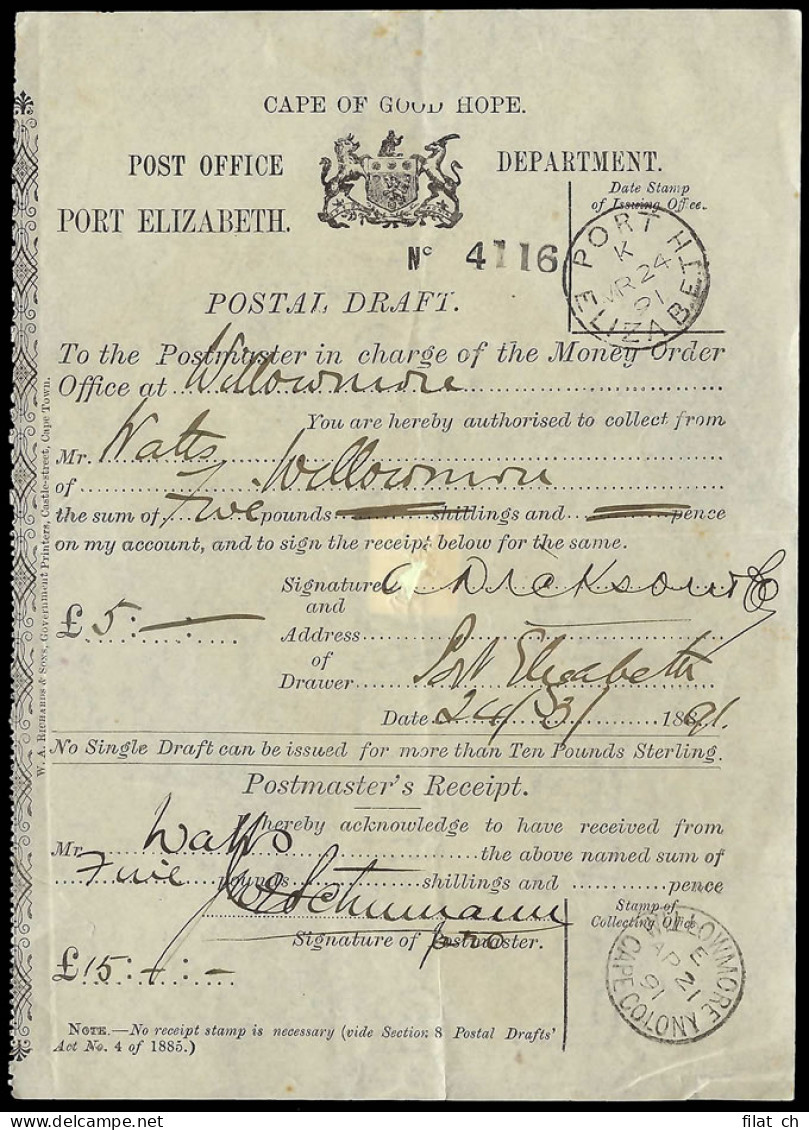 CAPE OF GOOD HOPE.
POST OFFICE DEPARTMENT.
PORT ELIZABETH.
Date Stamp
of Issuing Office.
No 4116
PORT ELIZABETH
K
MR 24
91
POSTAL DRAFT.
To the Postmaster in charge of the Money Order
Office at Willowmore
You are hereby authorised to collect from
Mr. Watts
of Willowmore
the sum of Five pounds shillings and pence
on my account, and to sign the receipt below for the same.
Signature Dickson
and
£5:
Address
of Port Elizabeth
Drawer
Date 24/3/ 1891.
No Single Draft can be issued for more than Ten Pounds Sterling.
Postmaster's Receipt.
I hereby acknowledge to have received from
Mr. Watts the above named sum of
Five pounds shillings and pence
Schumann
Signature of Postmaster.
pro
£15:-:-
Stamp of
Collecting Office
WILLOWMORE
E
AP 21
91
CAPE COLONY
NOTE.—No receipt stamp is necessary (vide Section 8 Postal Drafts'
Act No. 4 of 1885.)
W. A. RICHARDS & SONS, Government Printers, Castle-street, Cape Town.
filat ch